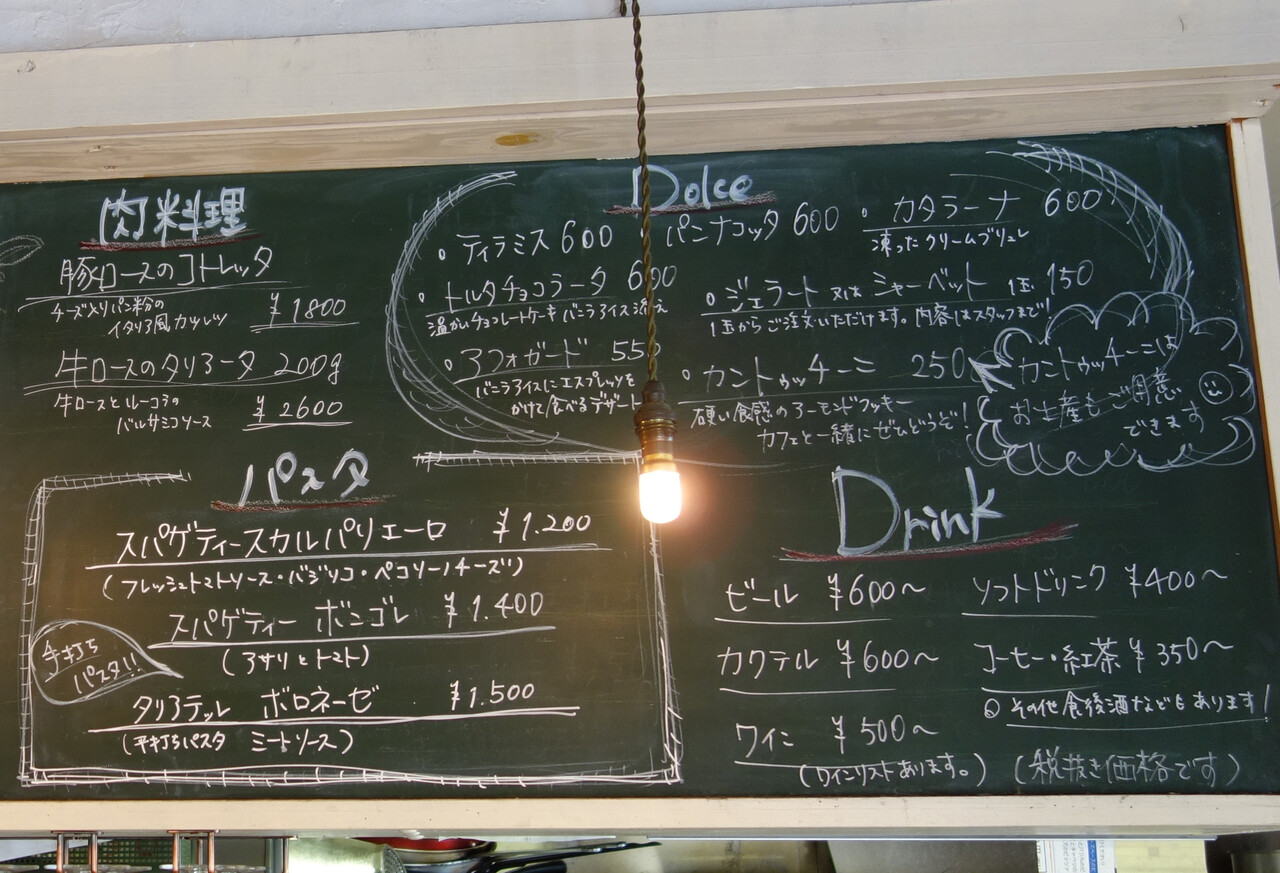 肉料理
豚ロースのコトレッタ
チーズ入りパン粉の
イタリア風カツレツ ¥1800
牛ロースのタリアータ 200g
牛ロースとルーコラの
バルサミコソース ¥2600
Dolce
・ティラミス 600 ・パンナコッタ 600 ・カタラーナ 600
凍ったクリームブリュレ
・トルタチョコラータ 600
温かいチョコレートケーキ バニラアイス添え
・ジェラート 又は シャーベット 1玉 150
1玉からご注文いただけます。内容はスタッフまで!
・アフォガード 550
バニラアイスにエスプレッソを
かけて食べるデザート
・カントゥッチーニ 250
硬い食感のアーモンドクッキー
カフェと一緒にぜひどうぞ!
カントゥッチーニは
お土産もご用意
できます
パスタ
スパゲティースカルパリエーロ ¥1.200
(フレッシュトマトソース・バジリコ・ペコリーノチーズ)
スパゲティー ボンゴレ ¥1.400
(アサリとトマト)
手打ち
パスタ!!
タリアテッレ ボロネーゼ ¥1.500
(平打ちパスタ ミートソース)
Drink
ビール ¥600〜 ソフトドリンク ¥400〜
カクテル ¥600〜 コーヒー・紅茶 ¥350〜
。その他食後酒などもあります!
ワイン ¥500〜
(ワインリストあります。) (税抜き価格です)